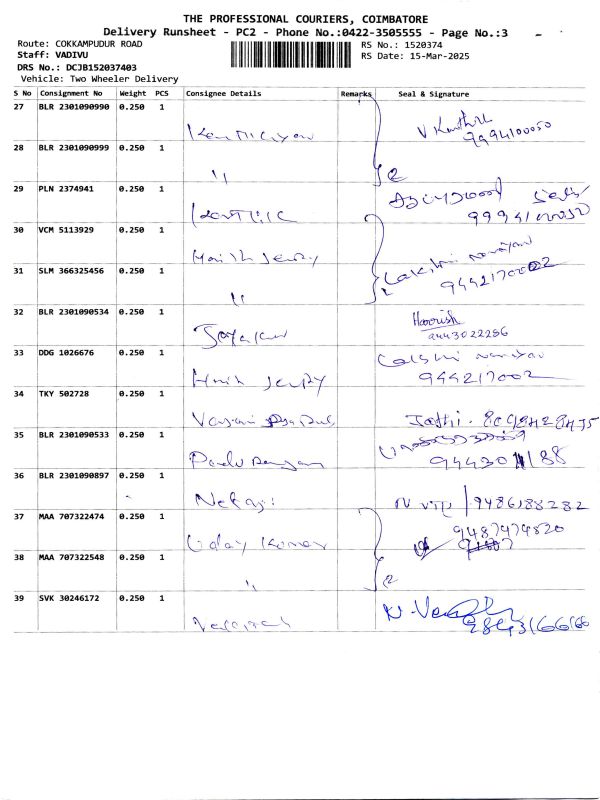 THE PROFESSIONAL COURIERS, COIMBATORE
Delivery Runsheet - PC2 - Phone No.:0422-3505555 - Page No.:3
Route: COKKAMPUDUR ROAD
RS No.: 1520374
Staff: VADIVU
RS Date: 15-Mar-2025
DRS No.: DCJB152037403
Vehicle: Two Wheeler Delivery
S No Consignment No Weight PCS Consignee Details Remarks Seal & Signature
27 BLR 2301090990 0.250 1
V Karthik
9994100050
28 BLR 2301090999 0.250 1
"
2
29 PLN 2374941 0.250 1
Karthik
30 VCM 5113929 0.250 1
Harish Jenry
Lakshmi narayan
31 SLM 366325456 0.250 1
"
2
32 BLR 2301090534 0.250 1
Jayakumar
Harish
9443022256
33 DDG 1026676 0.250 1
Harish Jenry
Lakshmi narayan
944217002
34 TKY 502728 0.250 1
Jothi.
35 BLR 2301090533 0.250 1
Pandu rangan
36 BLR 2301090897 0.250 1
Netaji
9486188282
37 MAA 707322474 0.250 1
Uday Kumar
9487479820
38 MAA 707322548 0.250 1
"
2
39 SVK 30246172 0.250 1